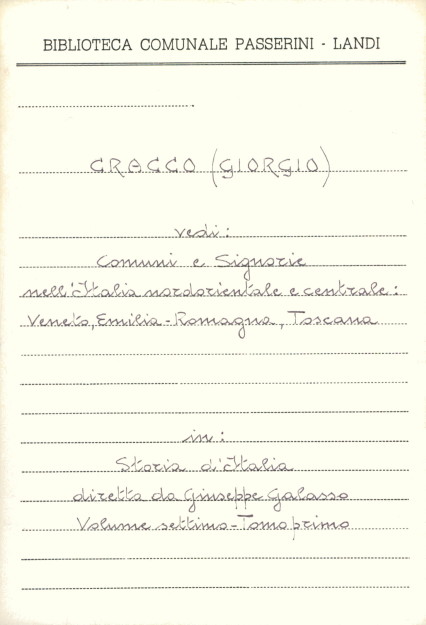 BIBLIOTECA COMUNALE PASSERINI - LANDI
CRACCO (GIORGIO)
vedi:
Comuni e Signorie
nell'Italia nordorientale e centrale:
Veneto, Emilia-Romagna, Toscana
in:
Storia d'Italia
diretta da Giuseppe Galasso
Volume settimo-Tomo primo